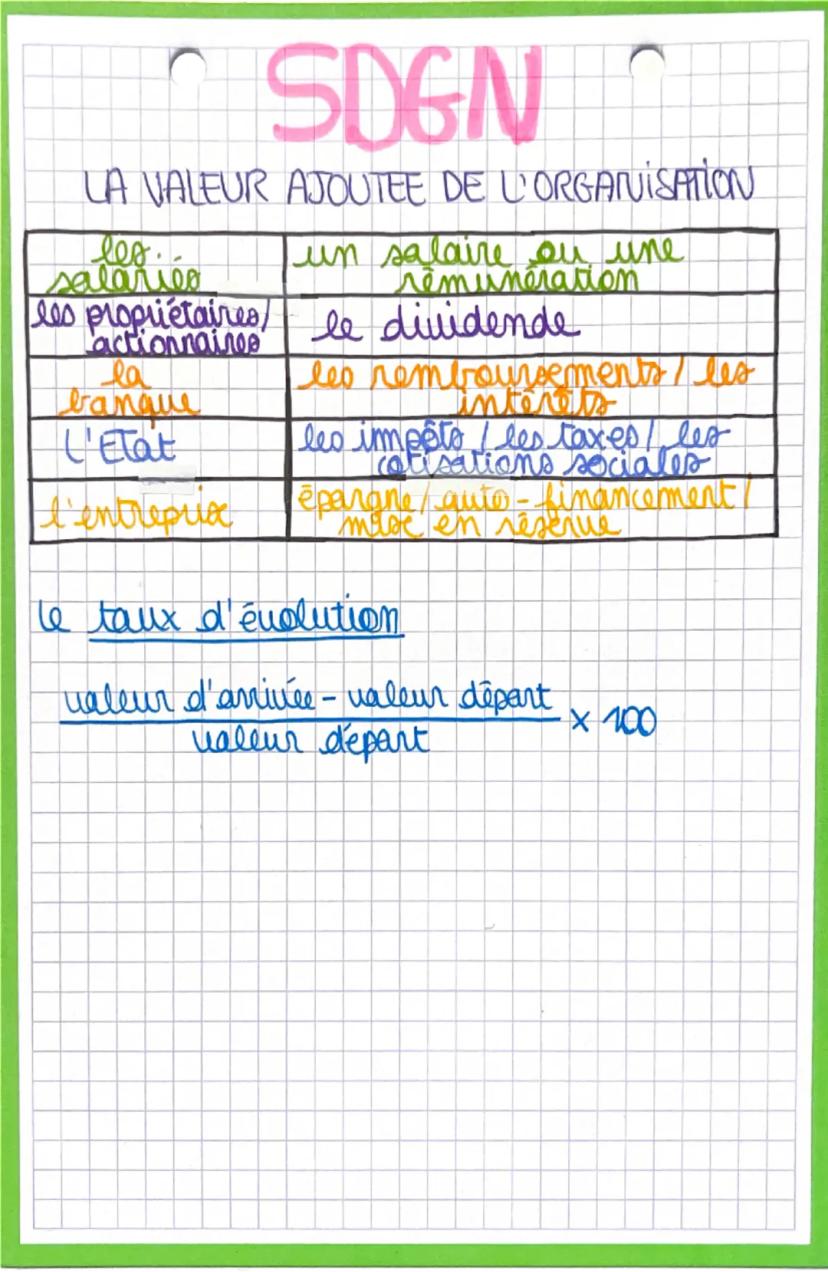 SDGN
LA VALEUR AJOUTEE DE L'ORGANISATION
les
salariés
un salaire ou une
rémunération
les propriétaires/
actionnaires
le dividende
la
banque
les remboursements / les
intérêts
L'Etat
les impôts / les taxes / les
cotisations sociales
l'entreprise
épargne / auto-financement /
mise en réserve
le taux d'évolution
valeur d'arrivée - valeur départ
valeur départ
x 100